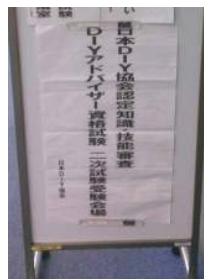 日本DIY協会認定知識・技能審査
DIYアドバイザー資格試験 二次試験受験会場
日本DIY協会